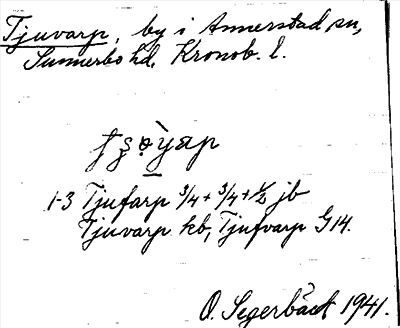 Tjuvarp, by i Annerstad sn,
Sunnerbo hd. Kronob. l.
1-3 Tjufarp 3/4 + 3/4 + 1/2 jb
Tjuvarp kb, Tjufvarp G 14.
O. Segerbäck 1941.